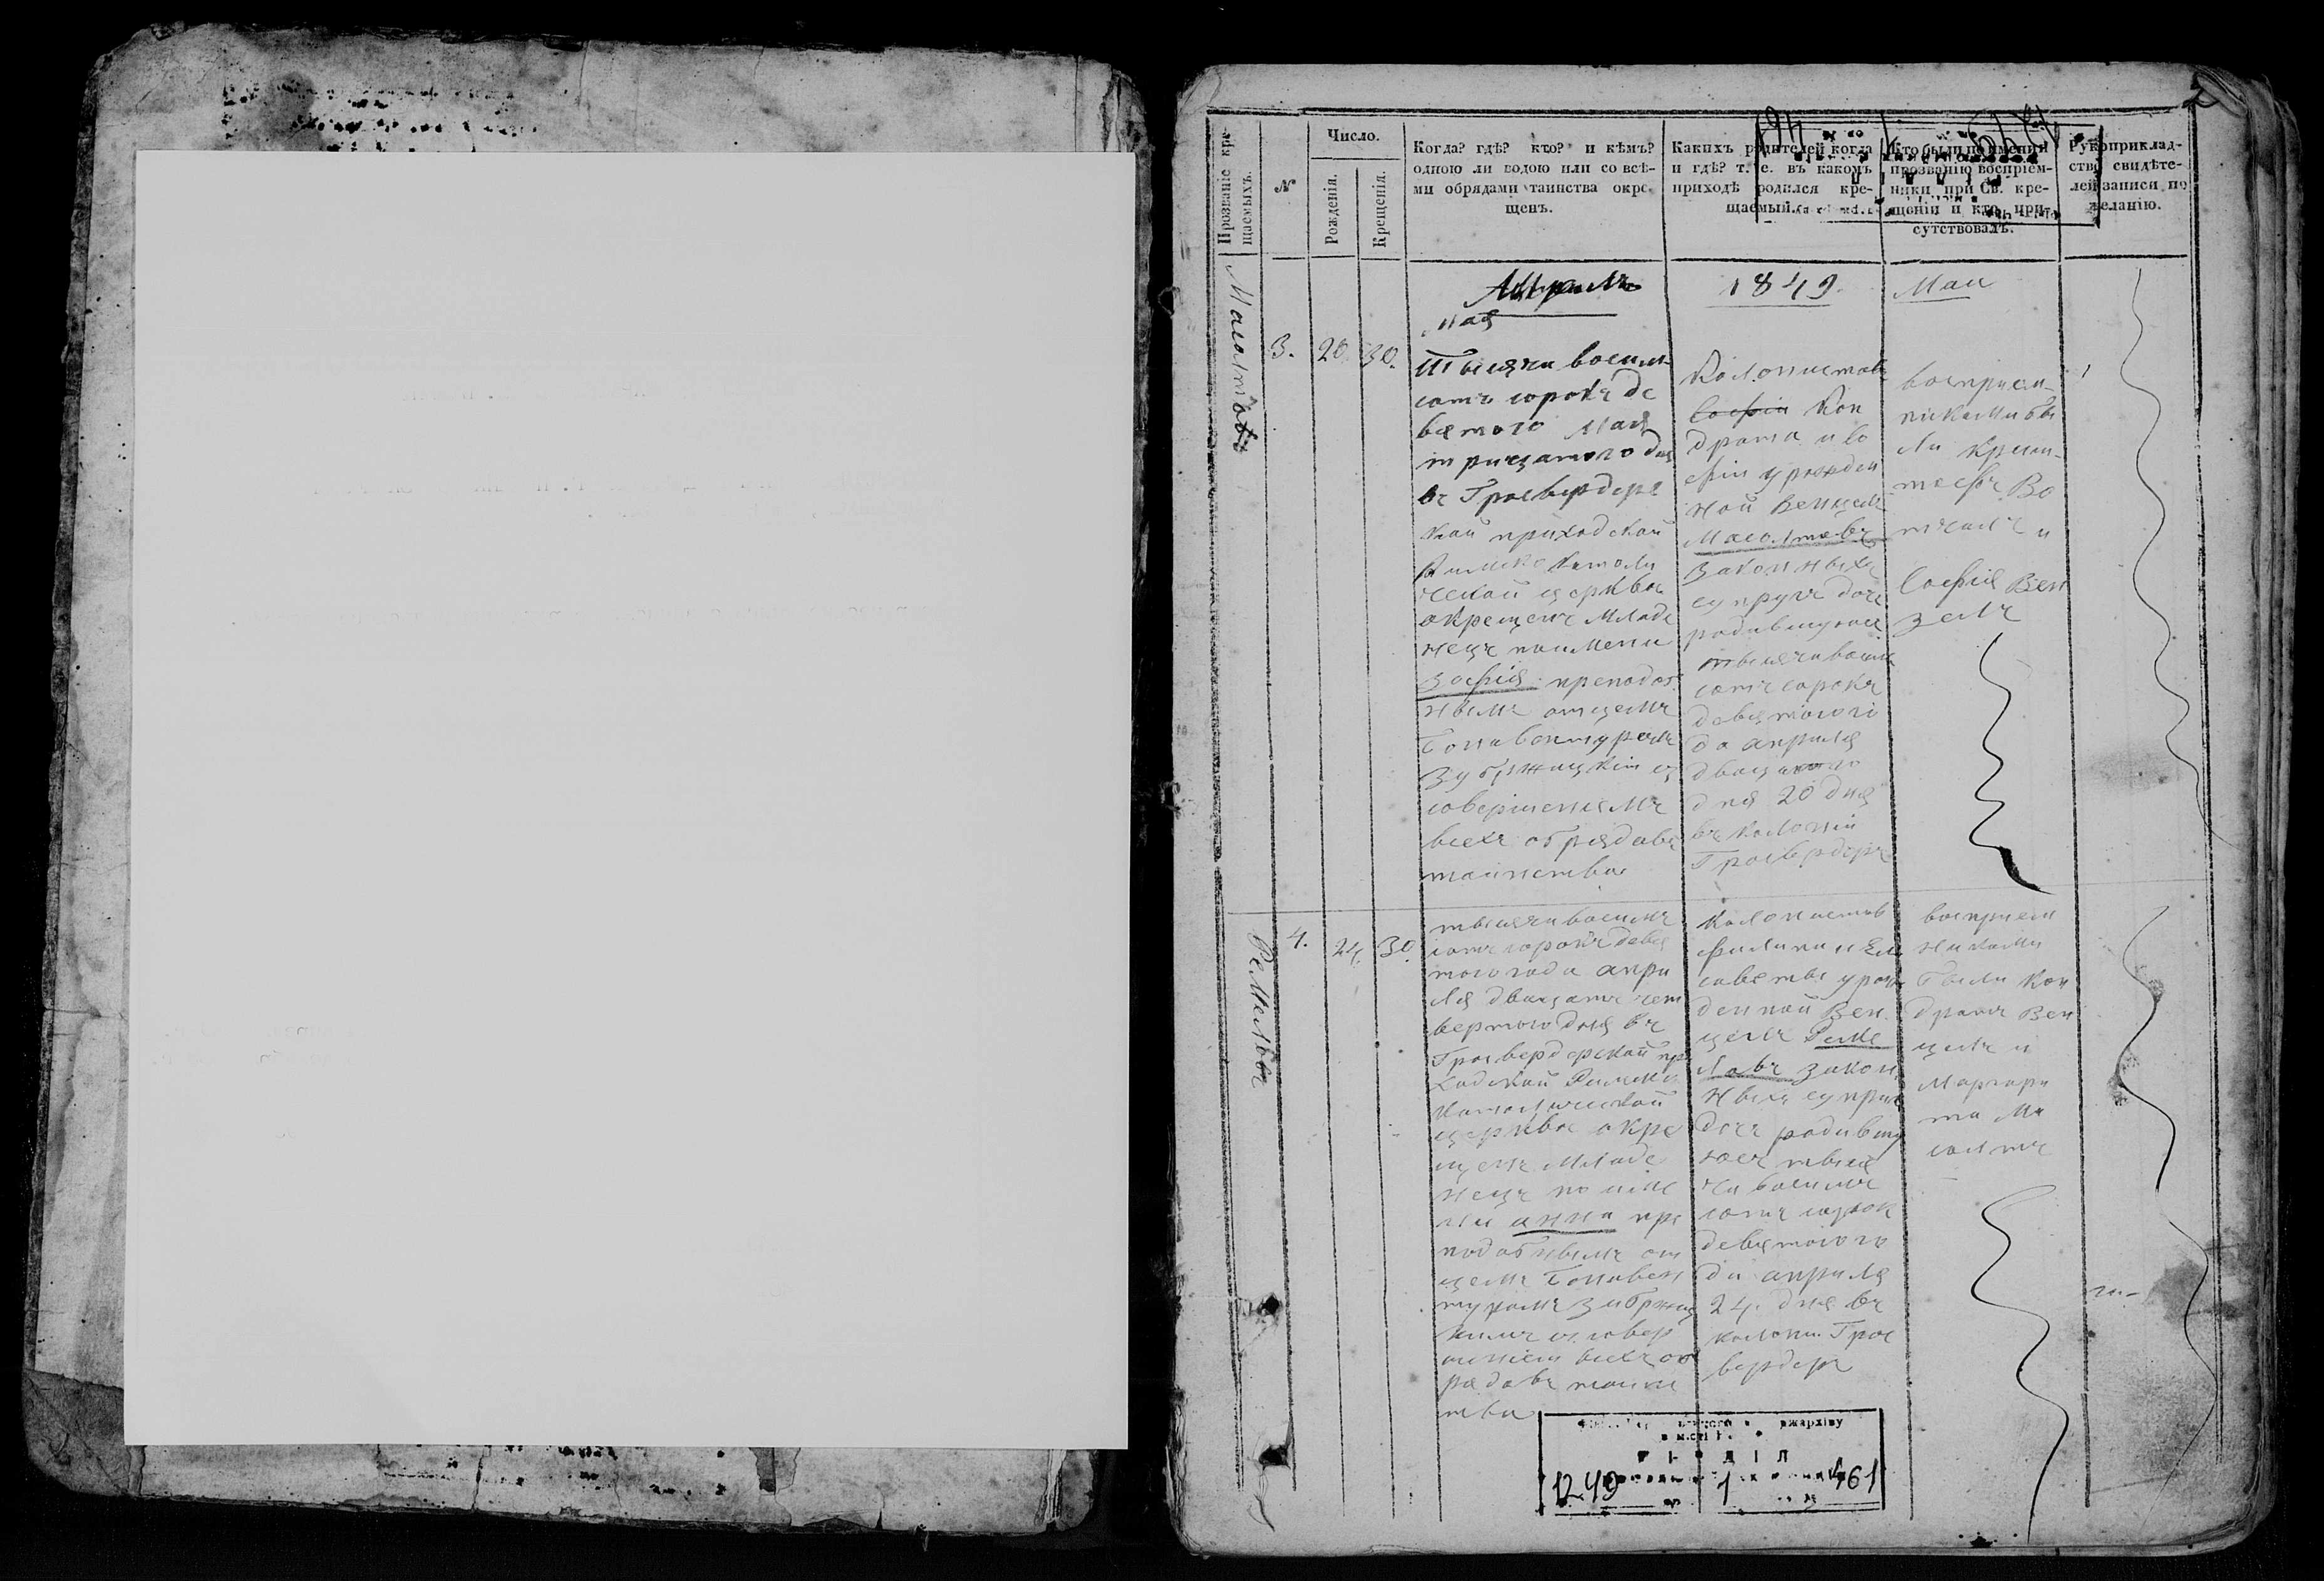 2
Прозваніе кре-
щаемыхъ.
№
Число.
Рожденія.
Крещенія.
Когда? гдѣ? кто? и кѣмъ?
одною ли водою или со всѣ-
ми обрядами таинства окре-
щенъ.
Какихъ родителей когда
и гдѣ? т. е. въ какомъ
приходѣ родился кре-
щаемый.
Кто были по имени
прозванію воспріем-
ники при Св. кре-
щеніи и кто при-
сутствовалъ.
Рукоприклад-
ство свидѣте-
лей записи по
желанію.
1849.
Маи
Мая
3.
20.
30.
Тысяча восем
сотъ сорокъ де
вятого Мая
трицатого дня
въ Гросвердерс
кой приходской
Римско Католи
ческой церкви
окрещенъ младе
нецъ поимени
Зофія преподоб
нымъ отцемъ
Бонавентуремъ
совершениемъ
всехъ обрядовъ
таинства
Колонистовъ
Кон
драта и Со
фіи урожден
ной Венцель
Масолтовъ
законныхъ
супруг дочь
родившуюся
тысяча восем
сотъ сорокъ
девятого го
да апрыля
двацатого
дня 20 дня
въ колоніи
Гросвердеръ
восприем-
никами бы
ли Крыш-
тофъ
и
Софія Вен
зель
4.
24.
30.
тысяча восемъ
сотъ сорокъ девя
того года апры
ля двацать чет
вертого дня въ
Гросвердерской пр
ходской Римско
Католической
церкви окре
щенъ младе
нецъ по име
ни анна пре
подобнымъ от
цемъ Бонавен
туромъ
кимъ съ совер
шенiем всехъ об
рядовъ таинс
тва
Колонистов
Филипа и Ели
саветы урож
денной Вен
цель Реме
ловъ закон
ныхъ супруг
дочъ родившу
юсь тыся
ча восемъ
сотъ сорок
девятого го
да апрыля
24. дня въ
колонии Грос
вердеръ
восприем
никами
были Кон
дратъ Вен
цель и
Маргари
та Ма
солтъ
1249
1
461